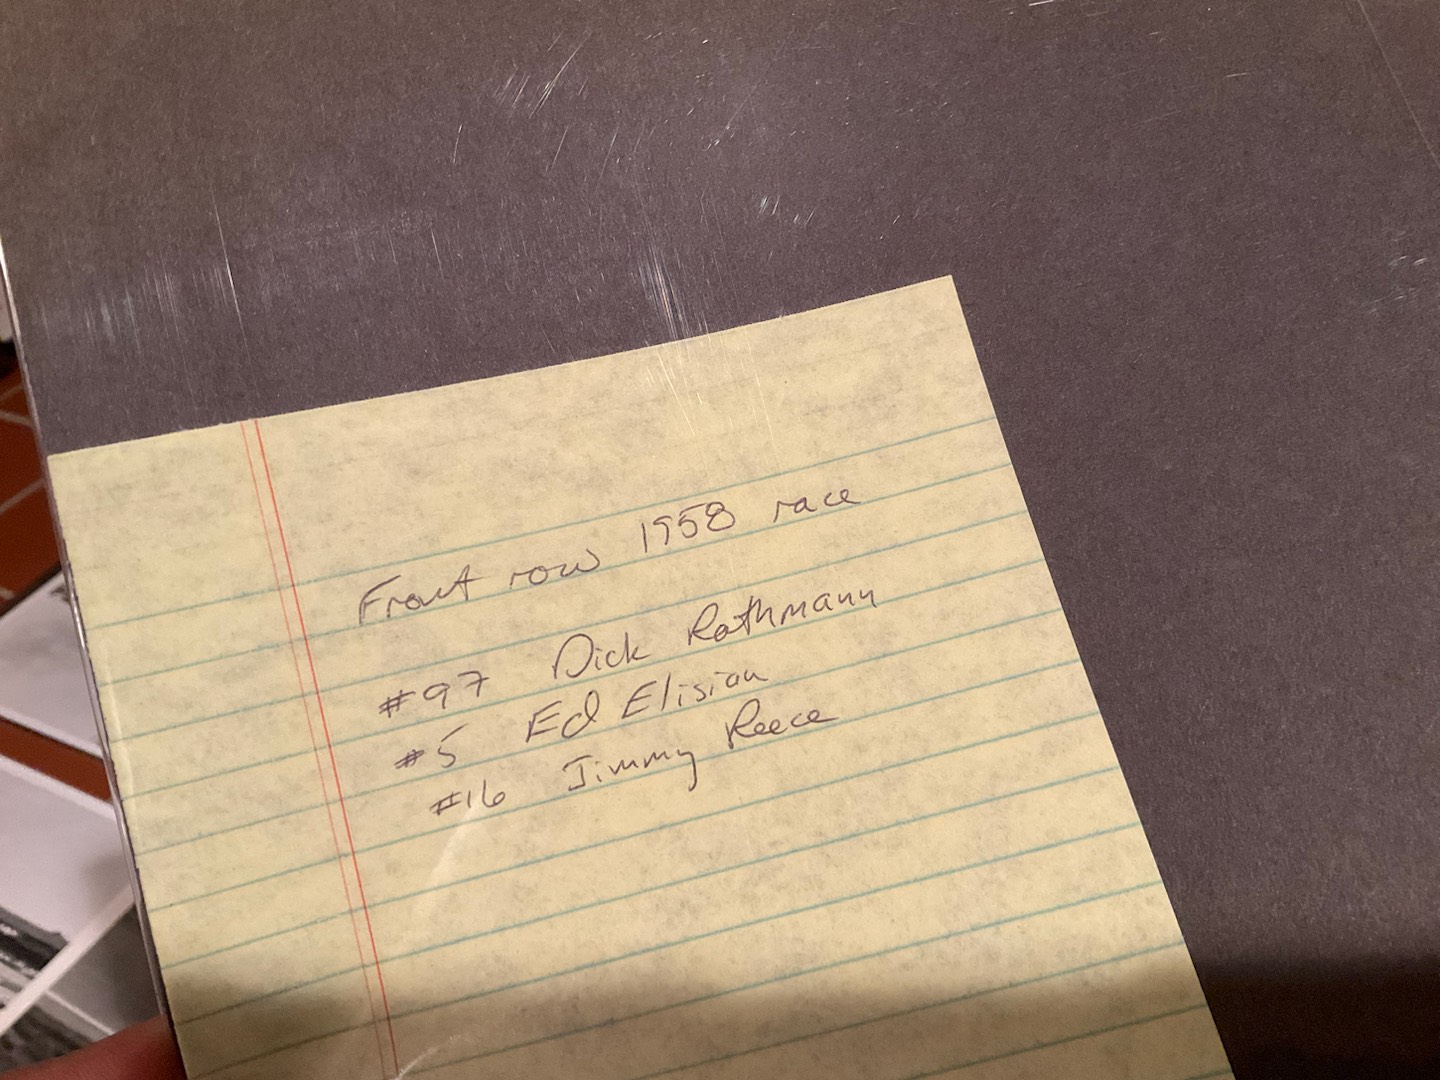 Front row 1958 race
#97 Dick Rathmann
#5 Ed Elisian
#16 Jimmy Reece